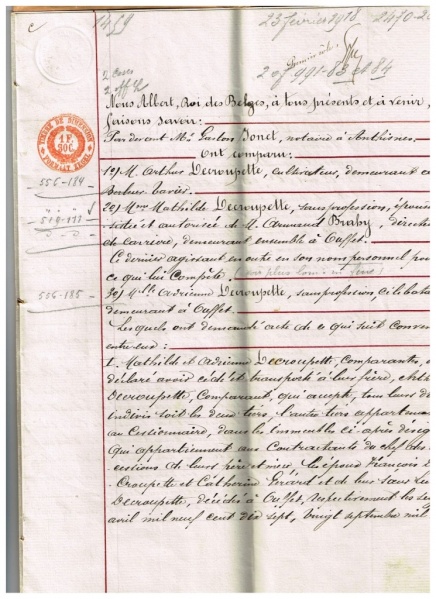 C
1459
23 février 1918
2470-2
2 of 991-83 et 84
Nous Albert, Roi des Belges, à tous présents et à venir,
faisons savoir:
Par devant Me Gaston Jonet, notaire à Anthisnes
Ont comparu:
1º) M. Arthur Decroupette, cultivateur, demeurant
TIMBRE DE DIMENSION
1 F
50 C.
FORMAT REGLE
556-184
2º) Mme Mathilde Decroupette, sans profession, épouse
519-111
et autorisée de M. Armand Braby, directeur
de carrière, demeurant ensemble à Ouffet.
Ce dernier agissant en outre en son nom personnel pour
ce qui lui compète
556-185
3º) Melle Adrienne Decroupette, sans profession, célibataire
demeurant à Ouffet.
Lesquels ont demandé acte de ce qui suit convenu
entre eux:
I. Mathilde et Adrienne Decroupette, Comparants,
déclaré avoir cédé et transporté à leur frère,
Decroupette, Comparant, qui accepte, tous leurs droits
indivis soit les deux tiers, l'autre tiers appartenant
au Cessionnaire, dans les immeubles ci-après désignés
qui appartiennent aux Contractants du chef des
cessions de leurs père et mère, les époux François
Croupette et Catherine Gérard et de leur sœur
Decroupette, décédés à Ouffet, respectivement les
avril mil neuf cent dix sept, vingt septembre mil